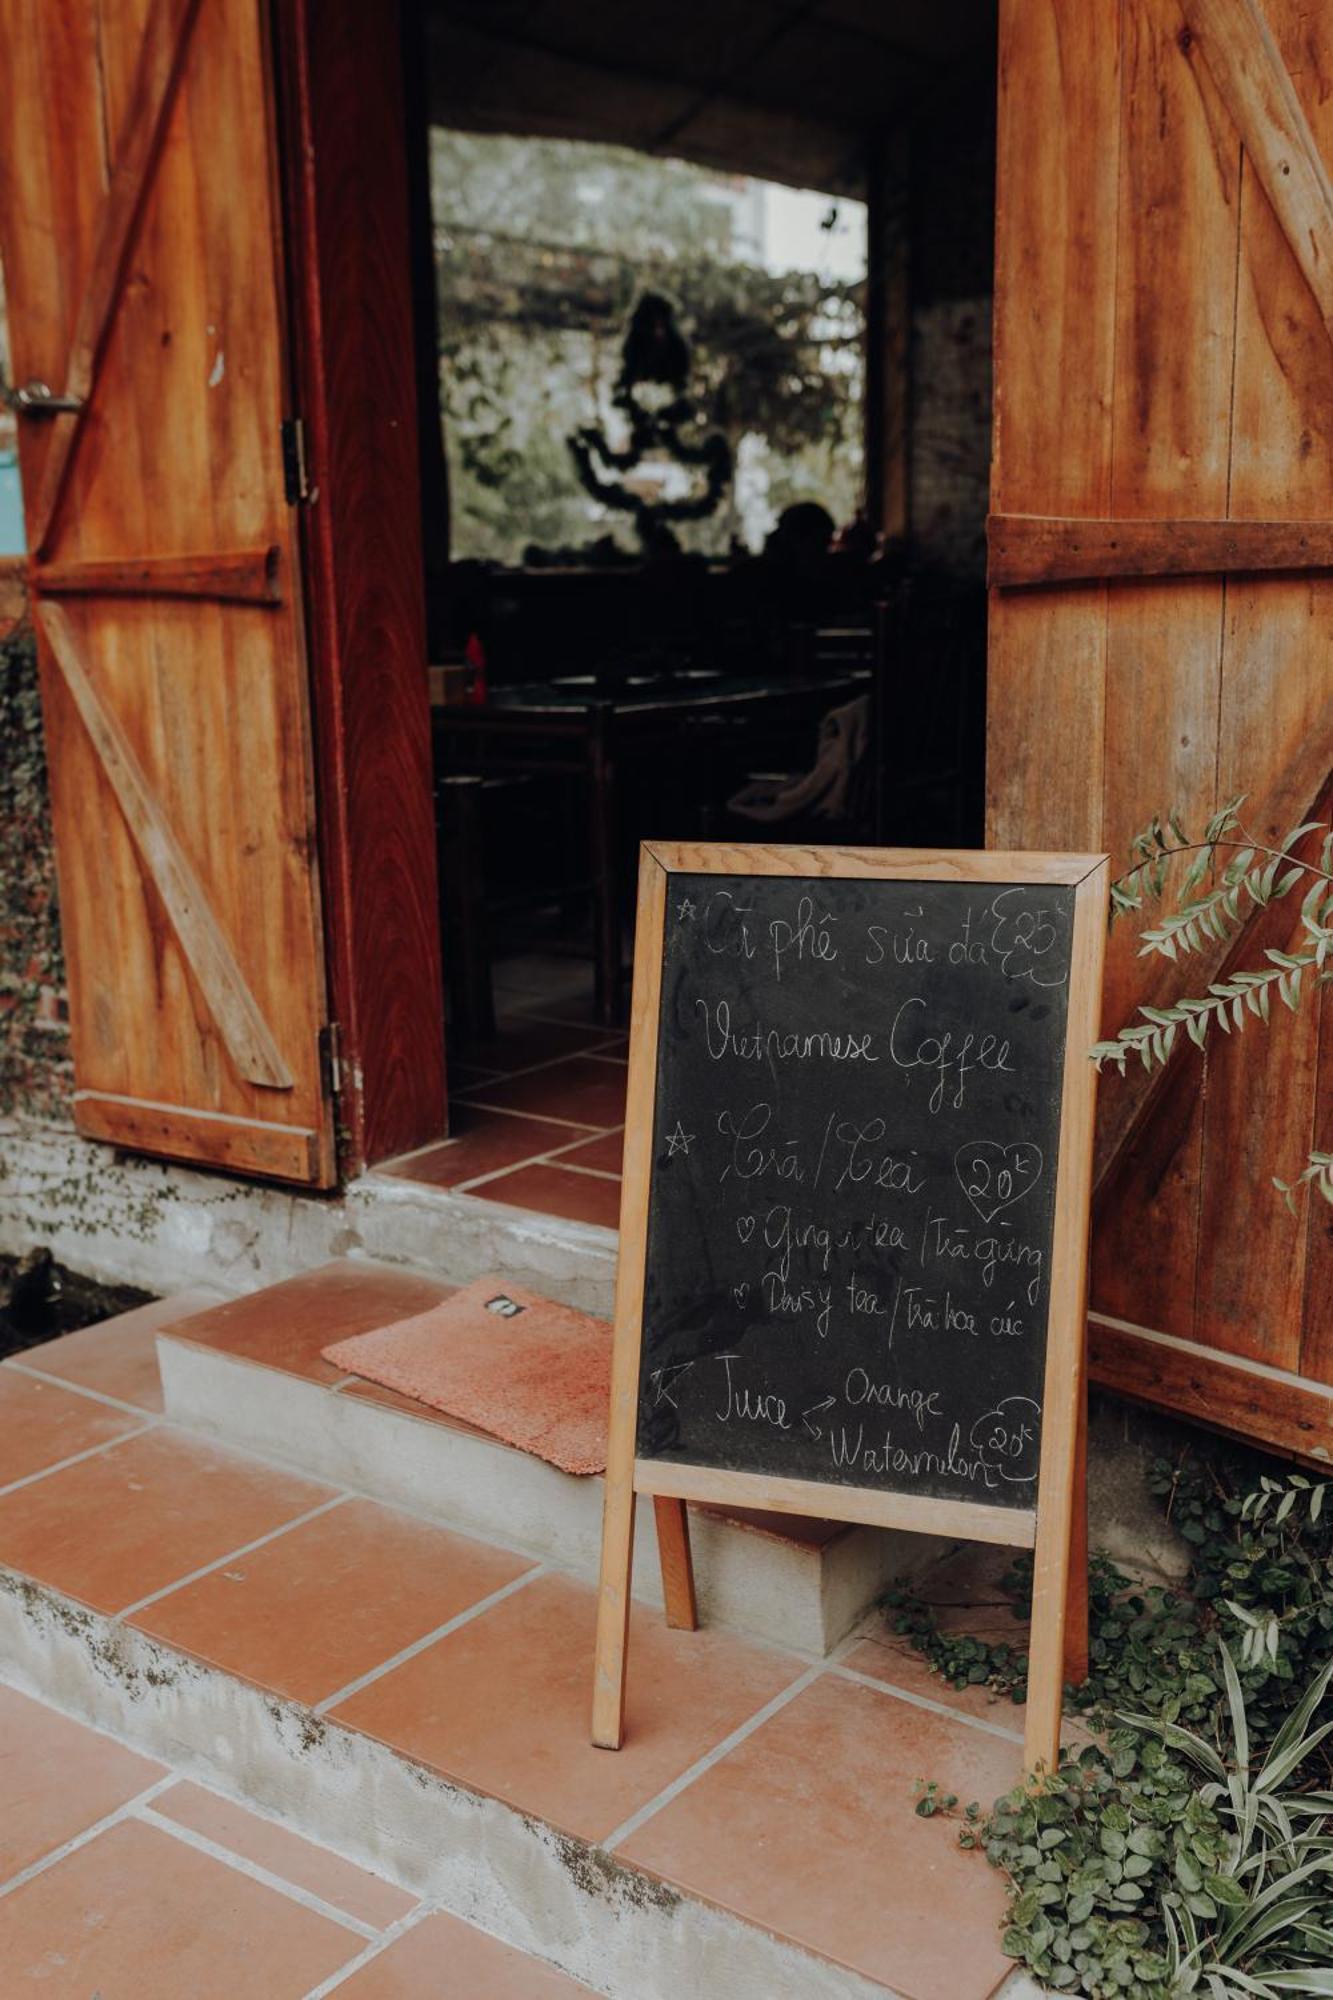 Cà phê sữa đá 25k
Vietnamese Coffee
Trà/Tea 20k
Ginger tea /Trà gừng
Daisy tea /Trà hoa cúc
Juice Orange
Watermelon 20k